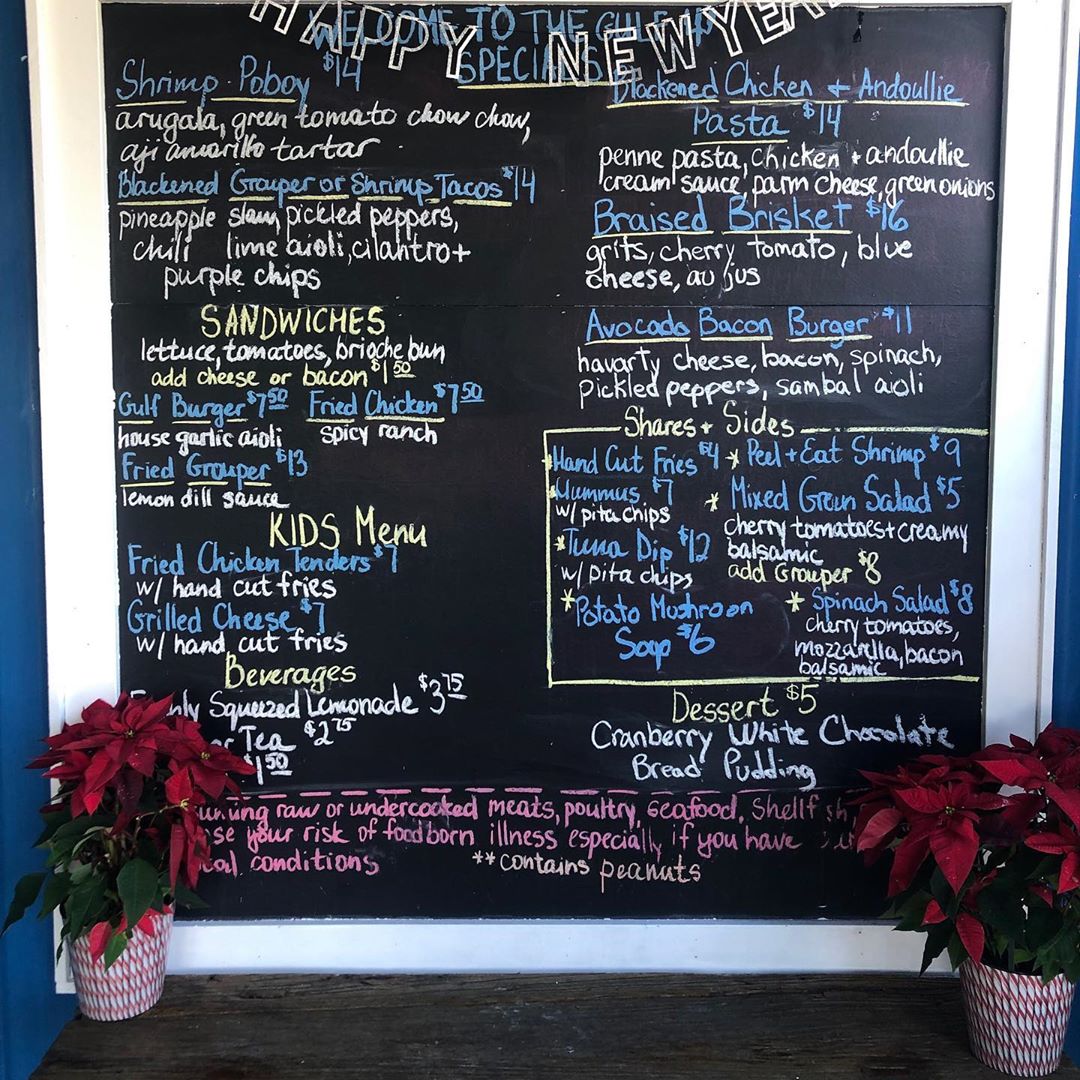 HAPPY NEW YEAR
WELCOME TO THE GULF
SPECIALS
Shrimp Poboy $14
arugala, green tomato chow chow,
aji amarillo tartar
Blackened Grouper or Shrimp Tacos $14
pineapple slaw, pickled peppers,
chili lime aioli, cilantro +
purple chips
Blackened Chicken + Andoullie
Pasta $14
penne pasta, chicken + andoullie
cream sauce, parm cheese, green onions
Braised Brisket $16
grits, cherry tomato, blue
cheese, au jus
SANDWICHES
lettuce, tomatoes, brioche bun
add cheese or bacon $1 50
Gulf Burger $7 50 Fried Chicken $7 50
house garlic aioli spicy ranch
Fried Grouper $13
lemon dill sauce
KIDS Menu
Fried Chicken Tenders $7
w/ hand cut fries
Grilled Cheese $7
w/ hand cut fries
Beverages
Squeezed Lemonade $3 75
Tea $2 75
$1 50
Avocado Bacon Burger $11
havarty cheese, bacon, spinach,
pickled peppers, sambal aioli
Shares + Sides
*Hand Cut Fries $4
*Hummus $7
w/ pita chips
*Tuna Dip $12
w/ pita chips
*Potato Mushroon
Soup $6
*Peel + Eat Shrimp $9
*Mixed Green Salad $5
cherry tomatoes + creamy
balsamic
add Grouper $8
*Spinach Salad $8
cherry tomatoes,
mozzarella, bacon
balsamic
Dessert $5
Cranberry White Chocolate
Bread Pudding
raw or undercooked meats, poultry, seafood,
your risk of foodborn illness especially if you have
conditions **contains peanuts